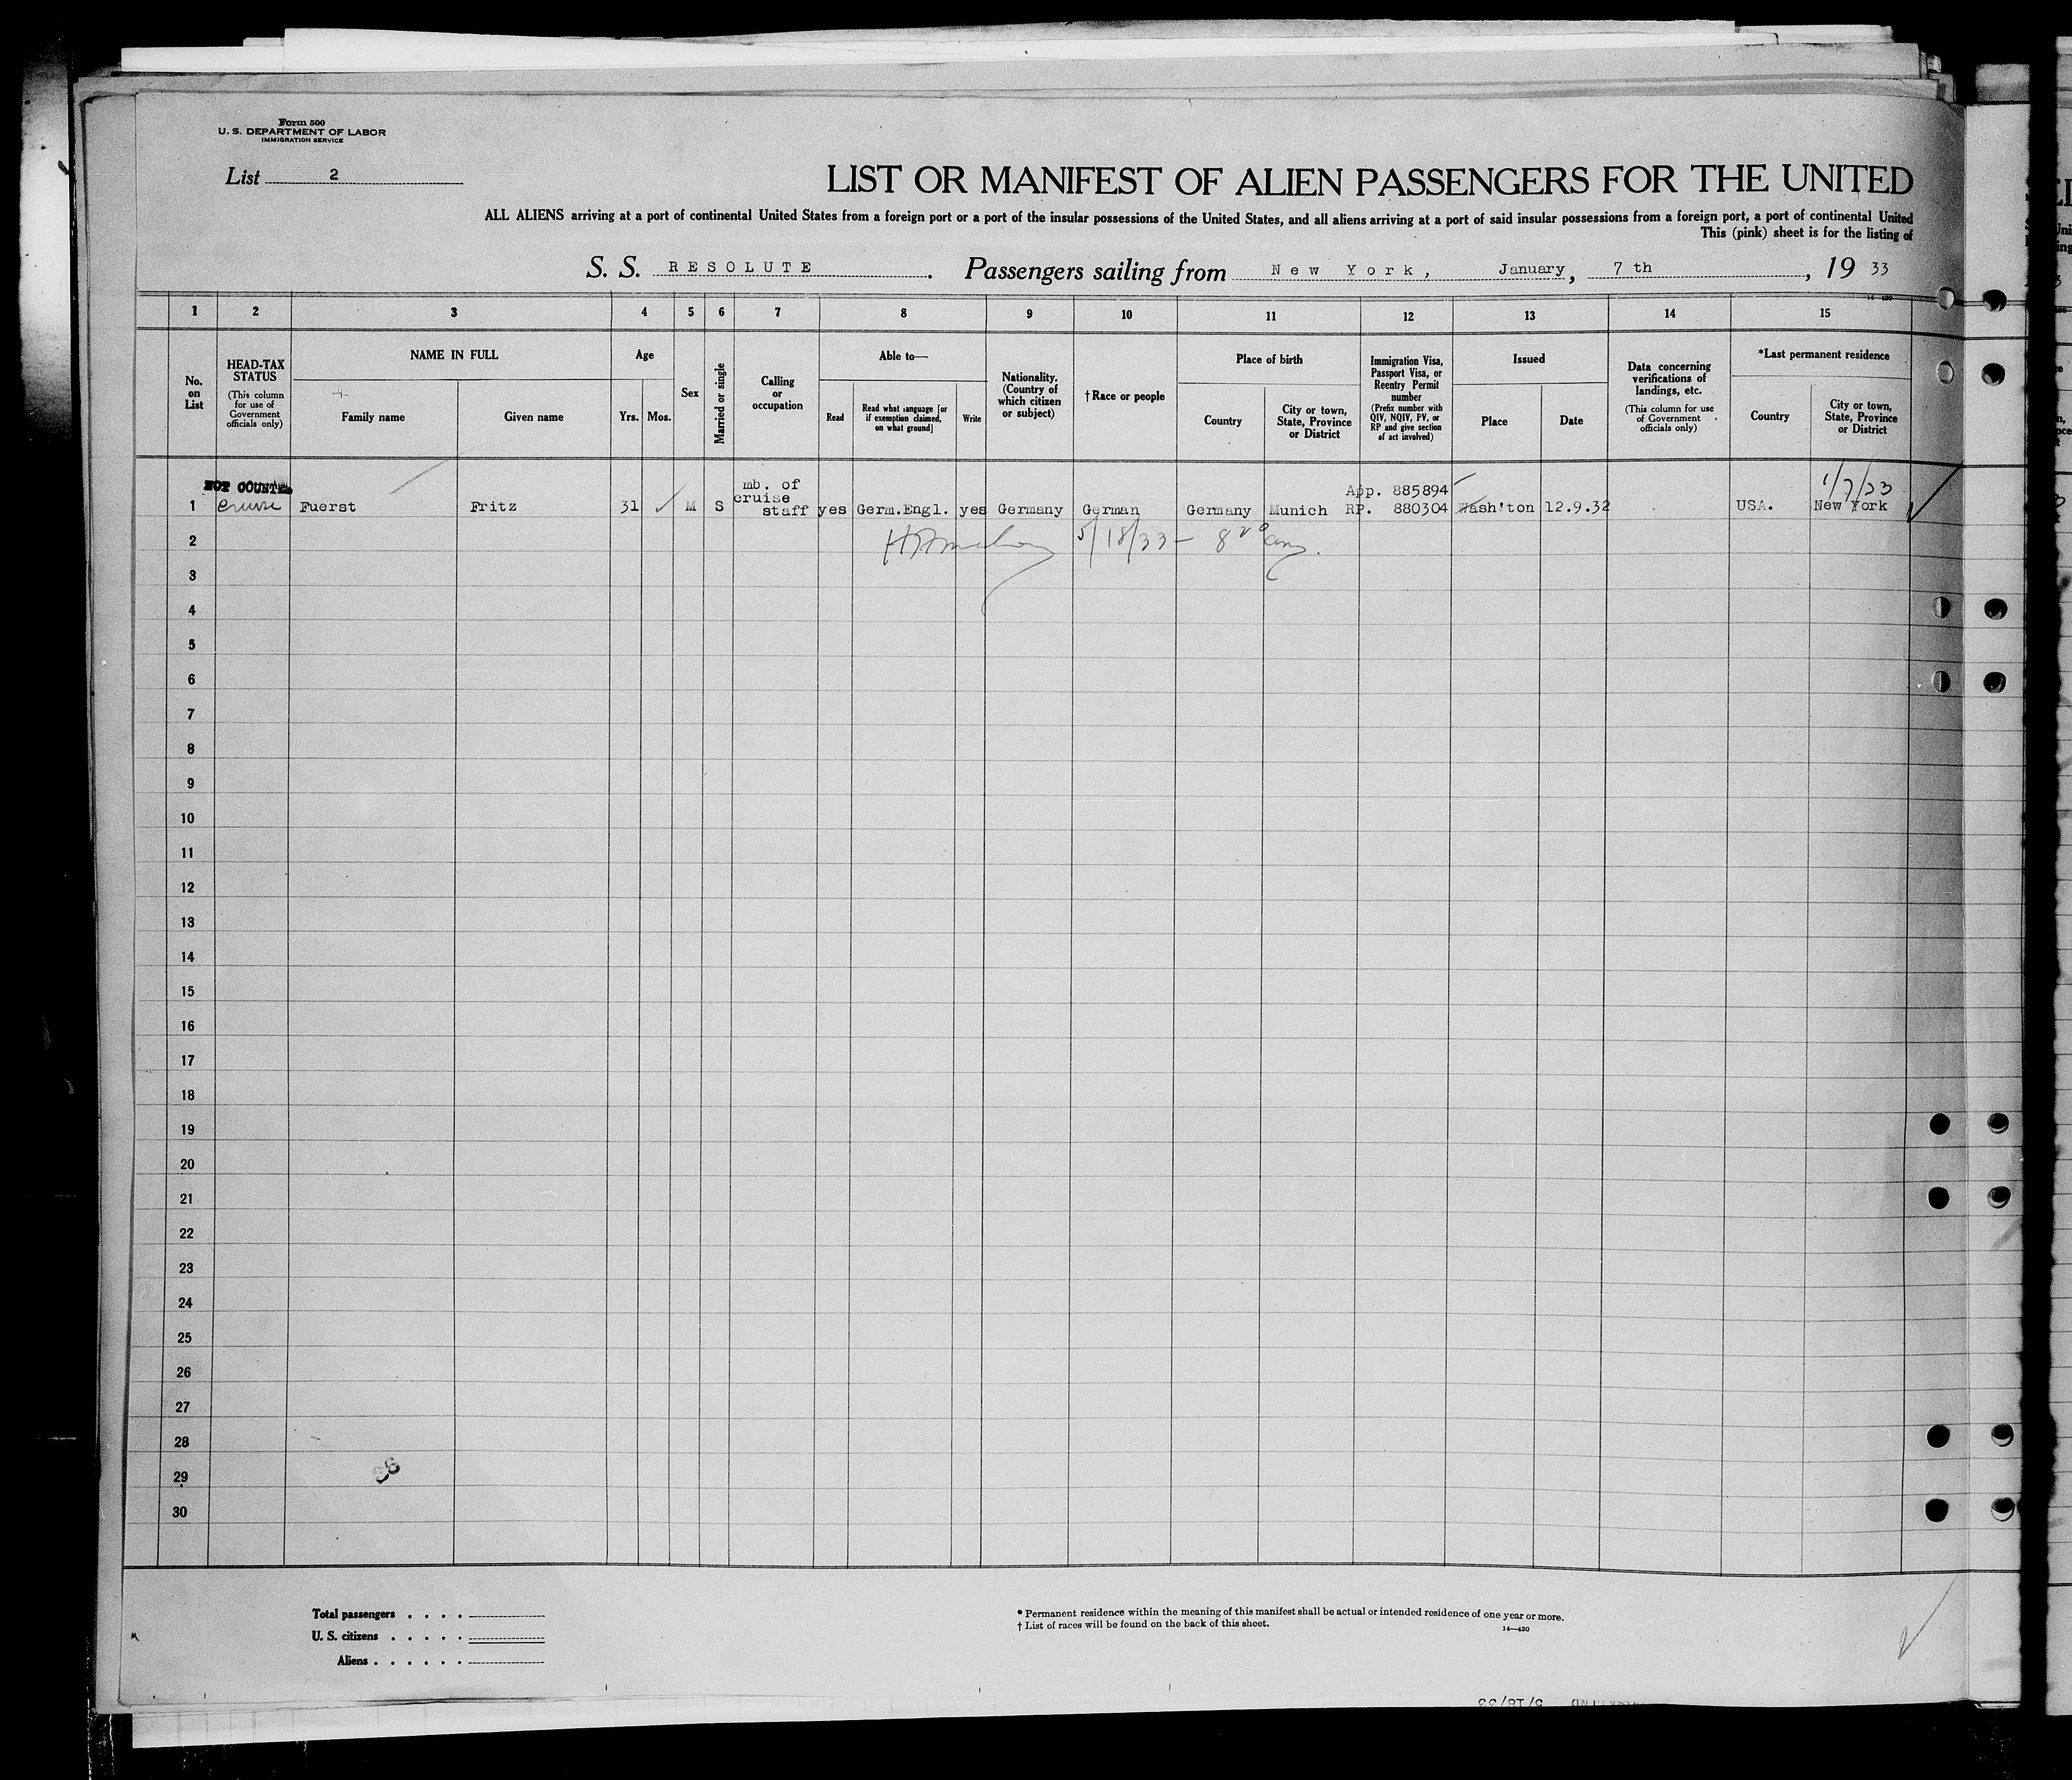 Form 500
U. S. DEPARTMENT OF LABOR
IMMIGRATION SERVICE
List 2
LIST OR MANIFEST OF ALIEN PASSENGERS FOR THE UNITED
ALL ALIENS arriving at a port of continental United States from a foreign port or a port of the insular possessions of the United States, and all aliens arriving at a port of said insular possessions from a foreign port, a port of continental United
This (pink) sheet is for the listing of
S. S. RESOLUTE. Passengers sailing from New York, January, 7 th, 19 33
14-430
1 2 3 4 5 6 7 8 9 10 11 12 13 14 15
No. on List
HEAD-TAX STATUS
(This column for use of Government officials only)
NAME IN FULL
Family name
Given name
Age
Yrs. Mos.
Sex
Married or single
Calling or occupation
Able to—
Read
Read what language [or if exemption claimed, on what ground]
Write
Nationality. (Country of which citizen or subject)
†Race or people
Place of birth
Country
City or town, State, Province or District
Immigration Visa, Passport Visa, or Reentry Permit number
(Prefix number with QIV, NQIV, PV, or RP and give section of act involved)
Issued
Place
Date
Data concerning verifications of landings, etc.
(This column for use of Government officials only)
*Last permanent residence
Country
City or town, State, Province or District
NOT COUNTED
mb. of
cruise
App. 885894
1/7/33
1 Cruise Fuerst Fritz 31 M S staff yes Germ.Engl. yes Germany German Germany Munich RP. 880304 Wash'ton 12.9.32 USA. New York
2 5/18/33
3
4
5
6
7
8
9
10
11
12
13
14
15
16
17
18
19
20
21
22
23
24
25
26
27
28
29
30
Total passengers . . . .
U. S. citizens . . . . .
Aliens . . . . . .
* Permanent residence within the meaning of this manifest shall be actual or intended residence of one year or more.
† List of races will be found on the back of this sheet.
14—430